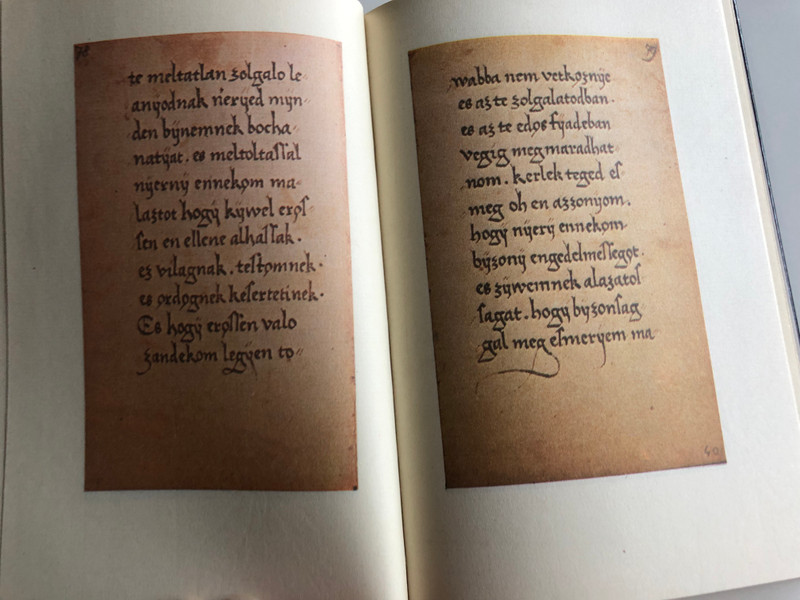 78
te meltatlan zolgalo le
anÿodnak nerÿed mÿn-
den bÿnemnek bocha-
natÿat. es meltoltaſſal
nÿernÿ ennekøm ma-
laztot hogÿ kÿwel erøſ-
ſen en ellene alhaſſak.
ez vilagnak. teſtømnek.
es ørdøgnek keſertetinek.
Es hogÿ erøſſen valo
zandekom legÿen to-
79
wabba nem vetkoznÿe
es az te zolgalatodban.
es az te edøs fÿadeban
vegig megmaradhat-
nom. kerlek teged eſ-
meg oh en azzonyom.
hogÿ nÿerÿ ennekøm
bÿzonÿ engedelmeſſegøt.
es zÿwemnek alazatoſ
ſagat. hogÿ bÿzonſag
gal meg eſmerÿem ma
40